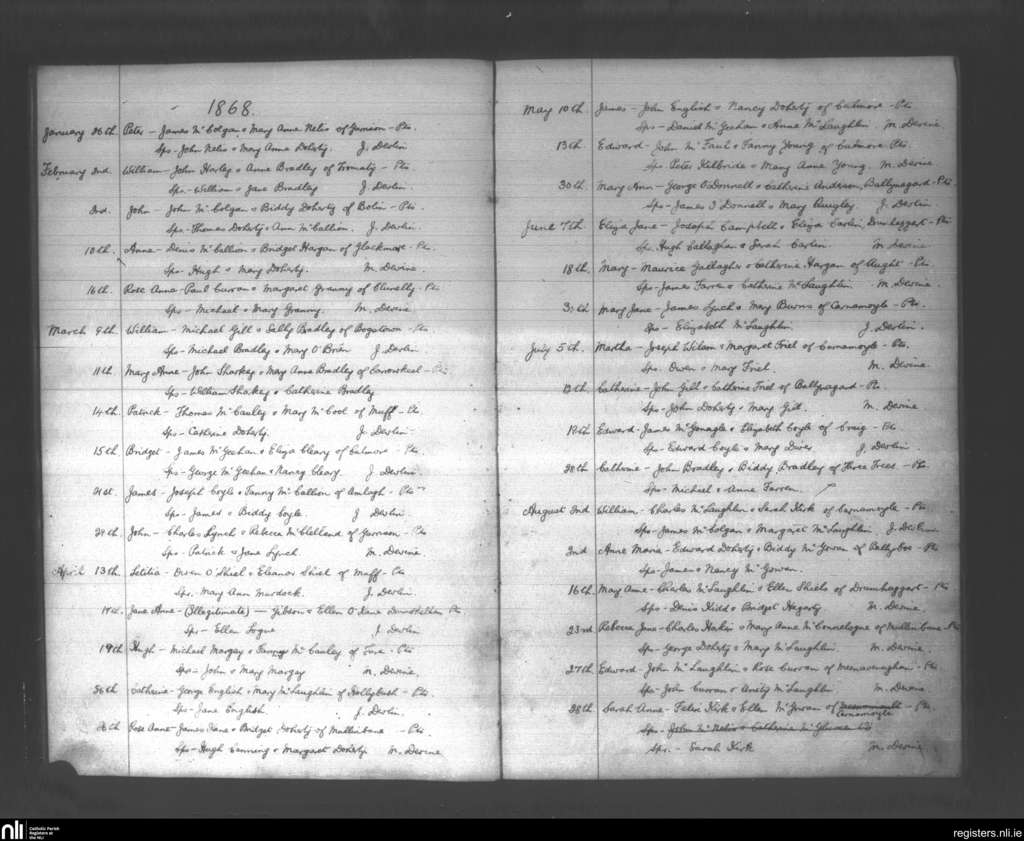 1868.
January 26th. Peter - James McColgan & Mary Anne Nelis of Garrison - Pts.
Sps - John Nelis & Mary Anne Doherty. J. Devlin
February 2nd. William - John Harley & Anne Bradley of Tromaty - Pts.
Sps - William & Jane Bradley J. Devlin
2nd. John - John McColgan & Biddy Doherty of - Pts.
Sps - Thomas Doherty & Ann McCallion. J. Devlin.
10th. Anne - Denis McCallion & Bridget Hargan of - Pts.
Sps - Hugh & Mary Doherty. M. Devine.
16th. Rose Anne - Paul Curran & Margaret Granny of - Pts.
Sps - Michael & Mary Granny. M. Devine.
March 9th. William - Michael Gill & Sally Bradley of Bogstown - Pts.
Sps - Michael Bradley & Mary O'Brien J. Devlin
11th. Mary Anne - John Sharkey & Mary Anne Bradley of
Sps - William Sharkey & Catherine Bradley
14th. Patrick - Thomas McCauley & Mary McCool of Muff - Pts
Sps - Catherine Doherty. J. Devlin
15th. Bridget - James McGeehan & Eliza Cleary of Culmore - Pts.
Sps - George McGeehan & Nancy Cleary. J Devlin.
21st. James - Joseph Coyle & Fanny McCallion of - Pts
Sps - James & Biddy Coyle. J Devlin.
29th. John - Charles Lynch & Rebecca McClelland of Garrison - Pts
Sps - Patrick & Jane Lynch. M. Devine.
April 13th. Letitia - Owen O'Shiel & Eleanor Shiel of Muff - Pts
Sps. Mary Ann Murdock. J. Devlin.
Jane Anne - (Illegitimate) — Gibson & Ellen O'Kane Pts.
Sps - Ellen Logue J. Devlin
19th Hugh - Michael Margey & Fanny McCauley of - Pts.
Sps - John & Mary Margey M. Devine,
26th Catherine - George English & Mary McLaughlin of Hollybush - Pts
Sps - Jane English J. Devlin.
26th Rose Anne - James Kane & Bridget Doherty of - Pts.
Sps - Hugh & Margaret Doherty M. Devine
May 10th. James - John English & Nancy Doherty of Culmore - Pts
Sps - Daniel McGeehan & Anne McLaughlin M. Devine.
13th. Edward - John McFaul & Fanny Young of Culmore Pts.
Sps Peter Kilbride & Mary Anne Young. M. Devine
30th. Mary Ann - George O'Donnell & Catherine Anderson, Ballynagard - Pts
Sps - James O'Donnell & Mary Quigley. J. Devlin.
June 7th. Eliza Jane - Joseph Campbell & Eliza Carlin, Drumhaggart - Pts
Sps. Hugh Callaghan & Sarah Carlin. M. Devine.
18th. Mary - Maurice Gallagher & Catherine Hargan of Aught - Pts.
Sps - James Farren & Catherine McLaughlin M. Devine.
Mary Jane - James Lynch & Mary Burns of Carnamoyle - Pts.
Sps - Elizabeth McLaughlin. J. Devlin.
July 5th. Martha - Joseph Wilson & Margaret Friel of Carnamoyle - Pts.
Sps. Owen & Mary Friel. M. Devine.
Catherine - John Gill & Catherine Friel of Ballynagard - Pts.
Sps - John Doherty & Mary Gill. M. Devine
Edward - James McGonagle & Elizabeth Coyle of Craig - Pts
Sps - Edward Coyle & Mary Diver J. Devlin
20th Catherine - John Bradley & Biddy Bradley of Three Trees - Pts.
Sps - Michael & Anne Farren.
August 2nd William - Charles McLaughlin & Sarah Kirk of Carnamoyle - Pts.
Sps - James McColgan & Margaret McLaughlin J. Devlin
2nd Anne Maria - Edward Doherty & Biddy McGowan of Ballyboe - Pts
Sps - James & Nancy McGowan.
16th Mary Anne - Charles McLaughlin & Ellen Shiels of Drumhaggart - Pts
Sps - Denis Kidd & Bridget Hegarty M. Devine.
23rd Rebecca Jane - Charles Harkin & Mary Anne McConnalogue of - Pts
Sps - George Doherty & Mary McLaughlin. M. Devine.
27th Edward - John McLaughlin & Rose Curran of - Pts.
Sps - John Curran & McLaughlin M. Devine
28th. Sarah Anne - Felix Kirk & Ellen McGowan of - Pts.
Carnamoyle
Sps - John McNelis & Catherine
Sps. - Sarah Kirk M. Devine.
nli
Catholic Parish
Registers at
the NLI
registers.nli.ie